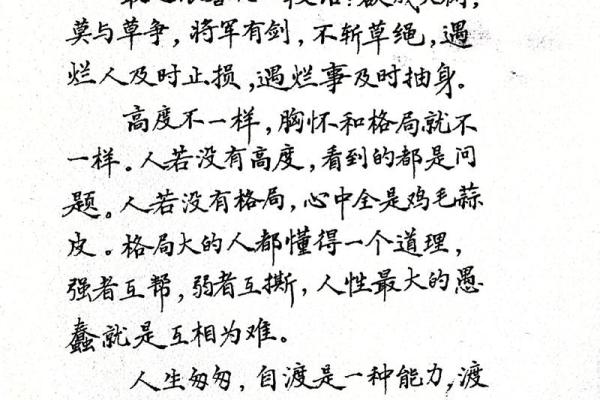 莫与草争，将军有剑，不斩草绳，遇
烂人及时止损，遇烂事及时抽身。
高度不一样，胸怀和格局就不
一样。人若没有高度，看到的都是问
题。人若没有格局，心中全是鸡毛蒜
皮。格局大的人都懂得一个道理，
强者互帮，弱者互撕，人性最大的愚
蠢就是互相为难。
人生匆匆，自渡是一种能力，渡